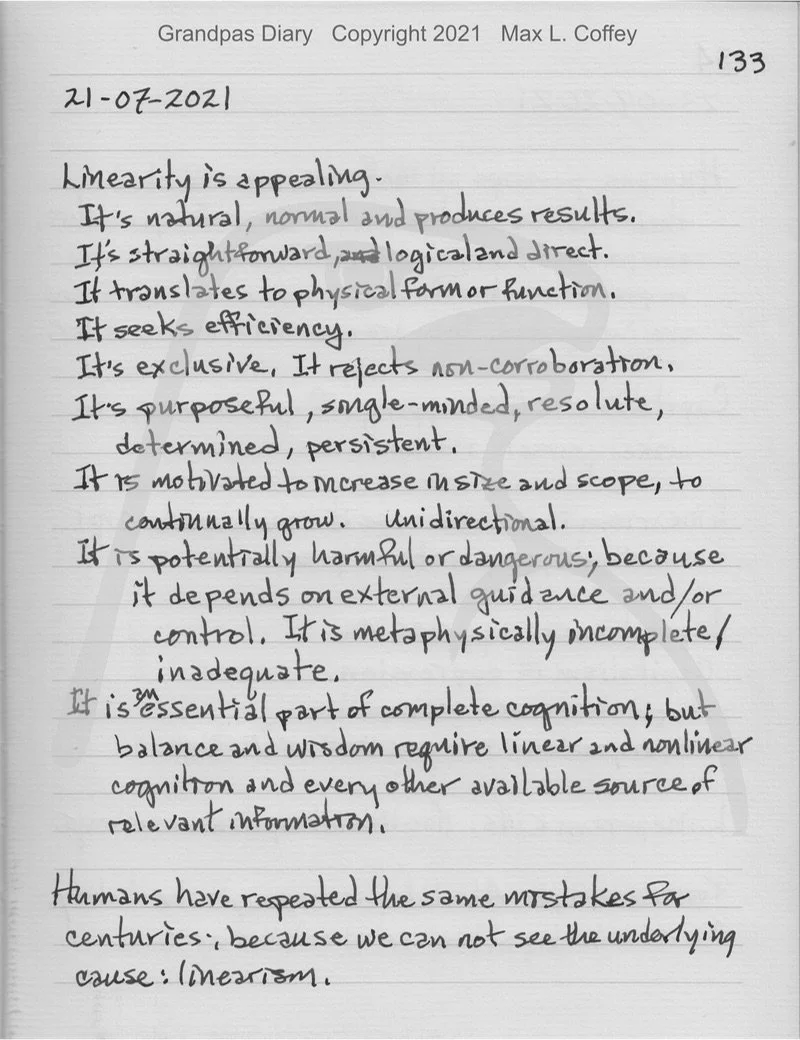 Grandpas Diary Copyright 2021 Max L. Coffey
133
21-07-2021
Linearity is appealing.
It's natural, normal and produces results.
It's straightforward, and logical and direct.
It translates to physical form or function.
It seeks efficiency.
It's exclusive. It rejects non-corroboration.
It's purposeful, single-minded, resolute,
determined, persistent.
It is motivated to increase in size and scope, to
continually grow. Unidirectional.
It is potentially harmful or dangerous; because
it depends on external guidance and/or
control. It is metaphysically incomplete/
inadequate.
It is an essential part of complete cognition; but
balance and wisdom require linear and nonlinear
cognition and every other available source of
relevant information.
Humans have repeated the same mistakes for
centuries; because we can not see the underlying
cause: linearism.